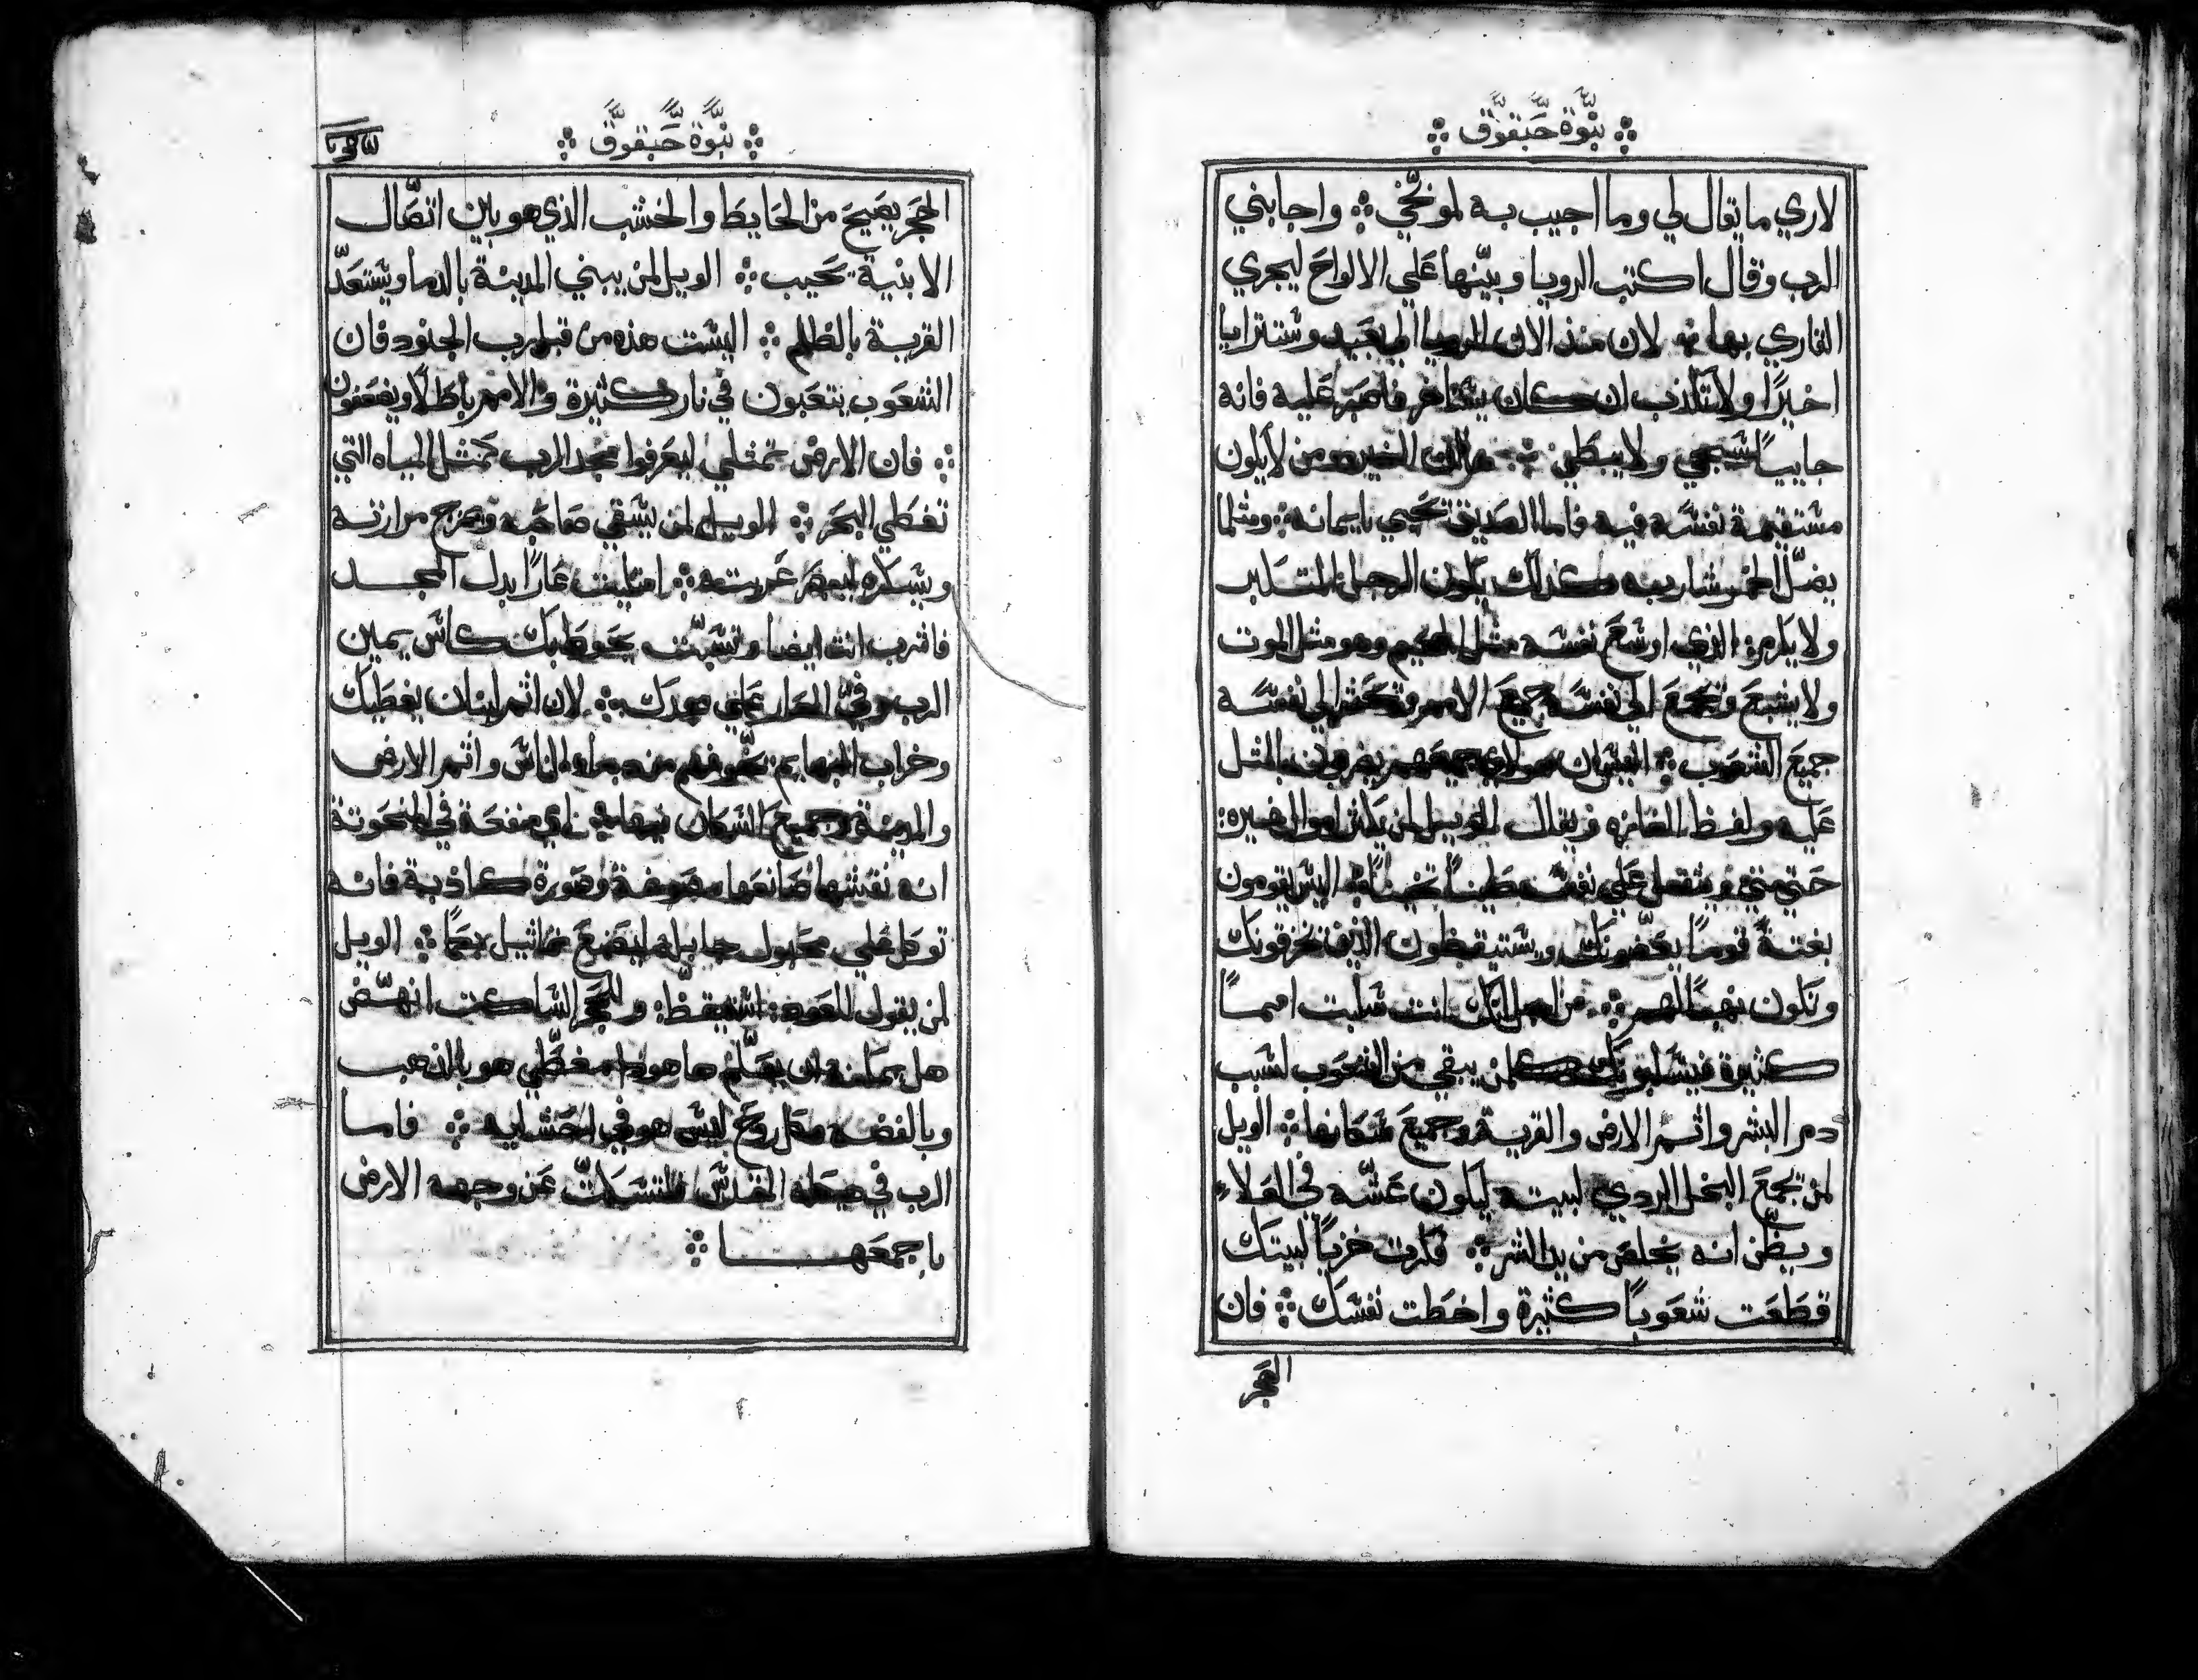 نبوّة حبقوق
لاري ما يقال لي وما اجيب به لموبخي واجابني
الرب وقال اكتب الرويا وبيّنها علي الالواح ليجري
القاري بها لان منذ الان الرويا الي بعيد وستترايا
اخيرًا ولا تكذب ان كان يتاخر فاصبر عليه فانه
جاييًا سيجي ولا يبطي من لا يكون
مستقيمة نفسه فيه فاما الصديق يحيي بايمانه ومثلما
يضلّ الخمر شاربه كذلك يكون الرجل المتكبر
ولا يكرم الذي اوسع نفسه مثل الجحيم وهو مثل الموت
ولا يشبع ويجمع الي نفسه جميع الامم ويحشر الي نفسه
جميع الشعوب اليس ان هولاي جميعهم يضربون بالمثل
عليه ولفظ الغازه ويقال الويل لمن يكثر اموال غيره
حتي متي ويثقل علي نفسه طينًا اليس يقومون
بغتةً قومًا يعضّونك ويستيقظون الذين يمزقونك
وتكون نهبًا لهم من اجل انك انت سلبت اممًا
كثيرة فيسلبونك كلمن يبقي من الشعوب لسبب
دم البشر واثم الارض والقرية وجميع سكانها الويل
لمن يجمع البخل الردي لبيته ليكون عشّه في العلاء
ويظن انه يخلص من يد الشر فكرت خزيًا لبيتك
قطعت شعوبًا كثيرة واخطت نفسك فان
الحجر
نبوّة حبقوق
الحجر يصيح من الحايط والخشب الذي هو بين اتصّال
الابنية تجيب الويل لمن يبني المدينة بالدما ويستعدّ
القرية بالظلم اليست هذه من قبل رب الجنود فان
الشعوب يتعبون في نار كثيرة والامم باطلًا ويضعفون
فان الارض تمتلي ليعرفوا مجد الرب كمثل المياه التي
تغطي البحر الويل لمن يسقي صاحبه ويمزج مرارته
ويسكره لينظر عريته امتليت عارًا بدل المجد
فاشرب انت ايضا وتسبّت يحوط بك كاس يمين
الرب وقي العار علي مجدك لان اثم لبنان يغطيك
وخراب البهايم يخوفهم من دماء الناس واثم الارض
والمدينة وجميع السكان فيها اي منفعة في المنحوتة
انه نقشها صانعها وصورة كاذبة فانه
توكل علي مجبول جابله ليصنع تماثيل بكمًا الويل
لمن يقول للعود استيقظ وللحجر الساكت انهض
هل يمكنه ان يعلّم ها هوذا مغطّي هو بالذهب
وبالفضه وكل روح ليس هو في احشايه فاما
الرب في هيكله المقدس فلتسكت عن وجهه الارض
باجمعها